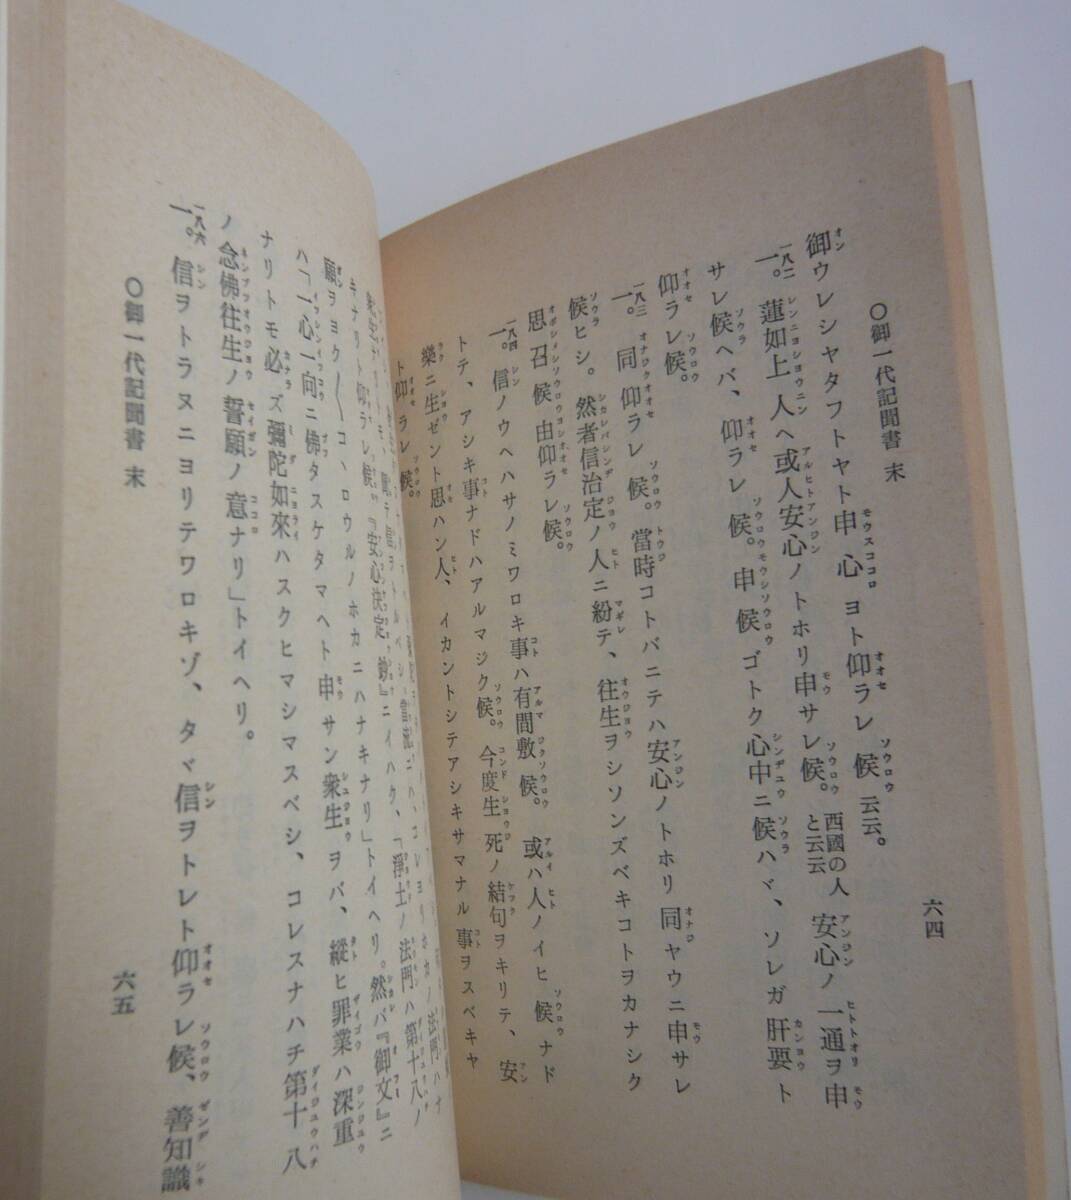 〇御一代記聞書 末
六四
御ウレシヤタフトヤト申心ヨト仰ラレ候云云。
一八二
一。蓮如上人ヘ或人安心ノトホリ申サレ候。西國の人と云云 安心ノ一通ヲ申
サレ候ヘバ、仰ラレ候。申候ゴトク心中ニ候ハヾ、ソレガ肝要ト
仰ラレ候。
一八三
一。同仰ラレ候。當時コトバニテハ安心ノトホリ同ヤウニ申サレ
候ヒシ。然者信治定ノ人ニ紛テ、往生ヲシソンズベキコトヲカナシク
思召候由仰ラレ候。
一八四
一。信ノウヘハサノミワロキ事ハ有間敷候。或ハ人ノイヒ候ナド
トテ、アシキ事ナドハアルマジク候。今度生死ノ結句ヲキリテ、安
樂ニ生ゼント思ハン人、イカントシテアシキサマナル事ヲスベキヤ
ト仰ラレ候。
キナリト仰ラレ候。『安心決定鈔』ニイハク、「淨土ノ法門ハ第十八ノ
願ヲヨク〱コヽロウルノホカニハナキナリ」トイヘリ。然バ『御文』ニ
ハ「一心一向ニ佛タスケタマヘト申サン衆生ヲバ、縱ヒ罪業ハ深重
ナリトモ必ズ彌陀如來ハスクヒマシマスベシ、コレスナハチ第十八
ノ念佛往生ノ誓願ノ意ナリ」トイヘリ。
一八六
一。信ヲトラヌニヨリテワロキゾ、タヾ信ヲトレト仰ラレ候、善知識
〇御一代記聞書 末
六五